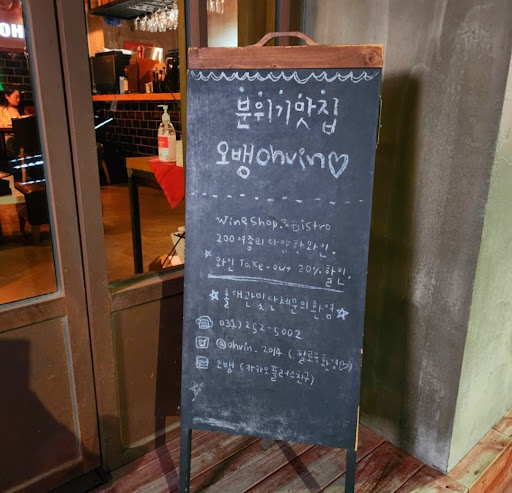 OH
분위기맛집
오뱅 Ohvin♡
Wine Shop & Bistro
200여종의 다양한 와인.
* 와인 Take-out 20% 할인.
☆홀대관 및 단체문의 환영☆
☎ 031) 252-5002
@ohvin_2014 (팔로우환영)
오뱅 (카카오플러스친구)